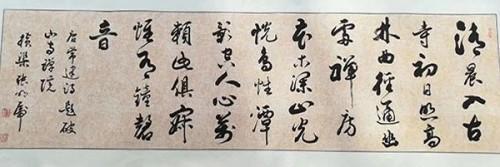 清晨入古
寺初日照高
林曲徑通幽
處禪房
花木深山光
悅鳥性潭
影空人心萬
籟此俱寂
惟聞鐘磬
音
唐常建詩題破
山寺禪院